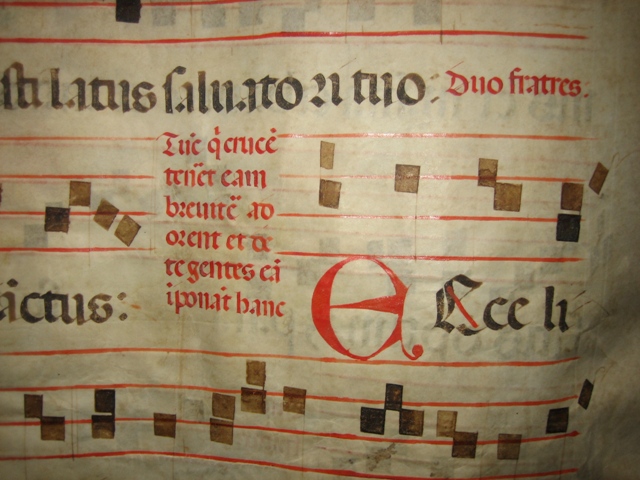 sti latus saluatori tuo: Duo fratres.
Tūc q̄ crucē
tenēt eam
breuitē ad
orent et de
tegentes eā
iponāt hanc
āctus: E Ecce li